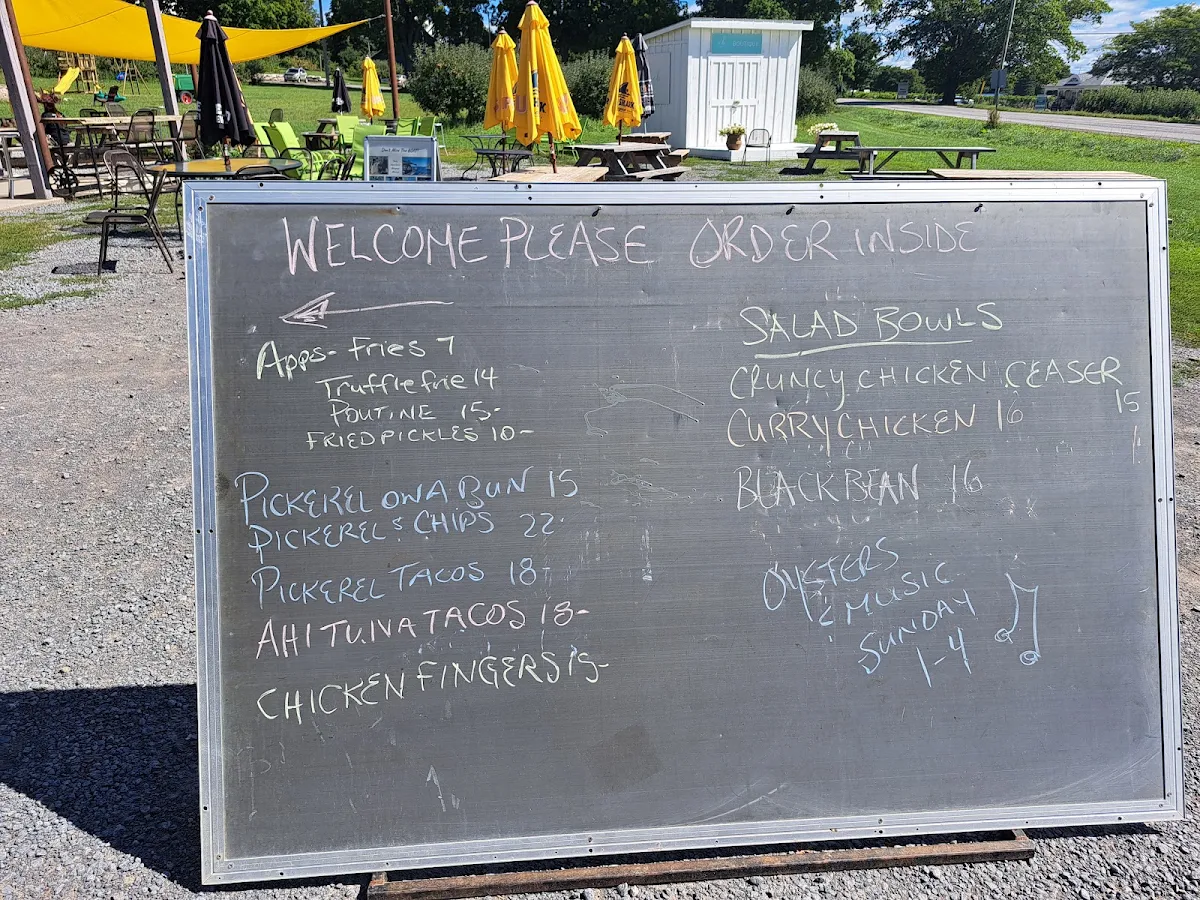 WELCOME PLEASE ORDER INSIDE
Apps- Fries 7
Truffle frie 14
POUTINE 15-
FRIED PICKLES 10-
PICKEREL ON A BUN 15
PICKEREL & CHIPS 22-
PICKEREL TACOS 18-
AHI TUNA TACOS 18-
CHICKEN FINGERS 15-
SALAD BOWLS
CRUNCY CHICKEN CEASER
15
CURRY CHICKEN 16
BLACK BEAN 16
OYSTERS
& MUSIC
SUNDAY
1-4